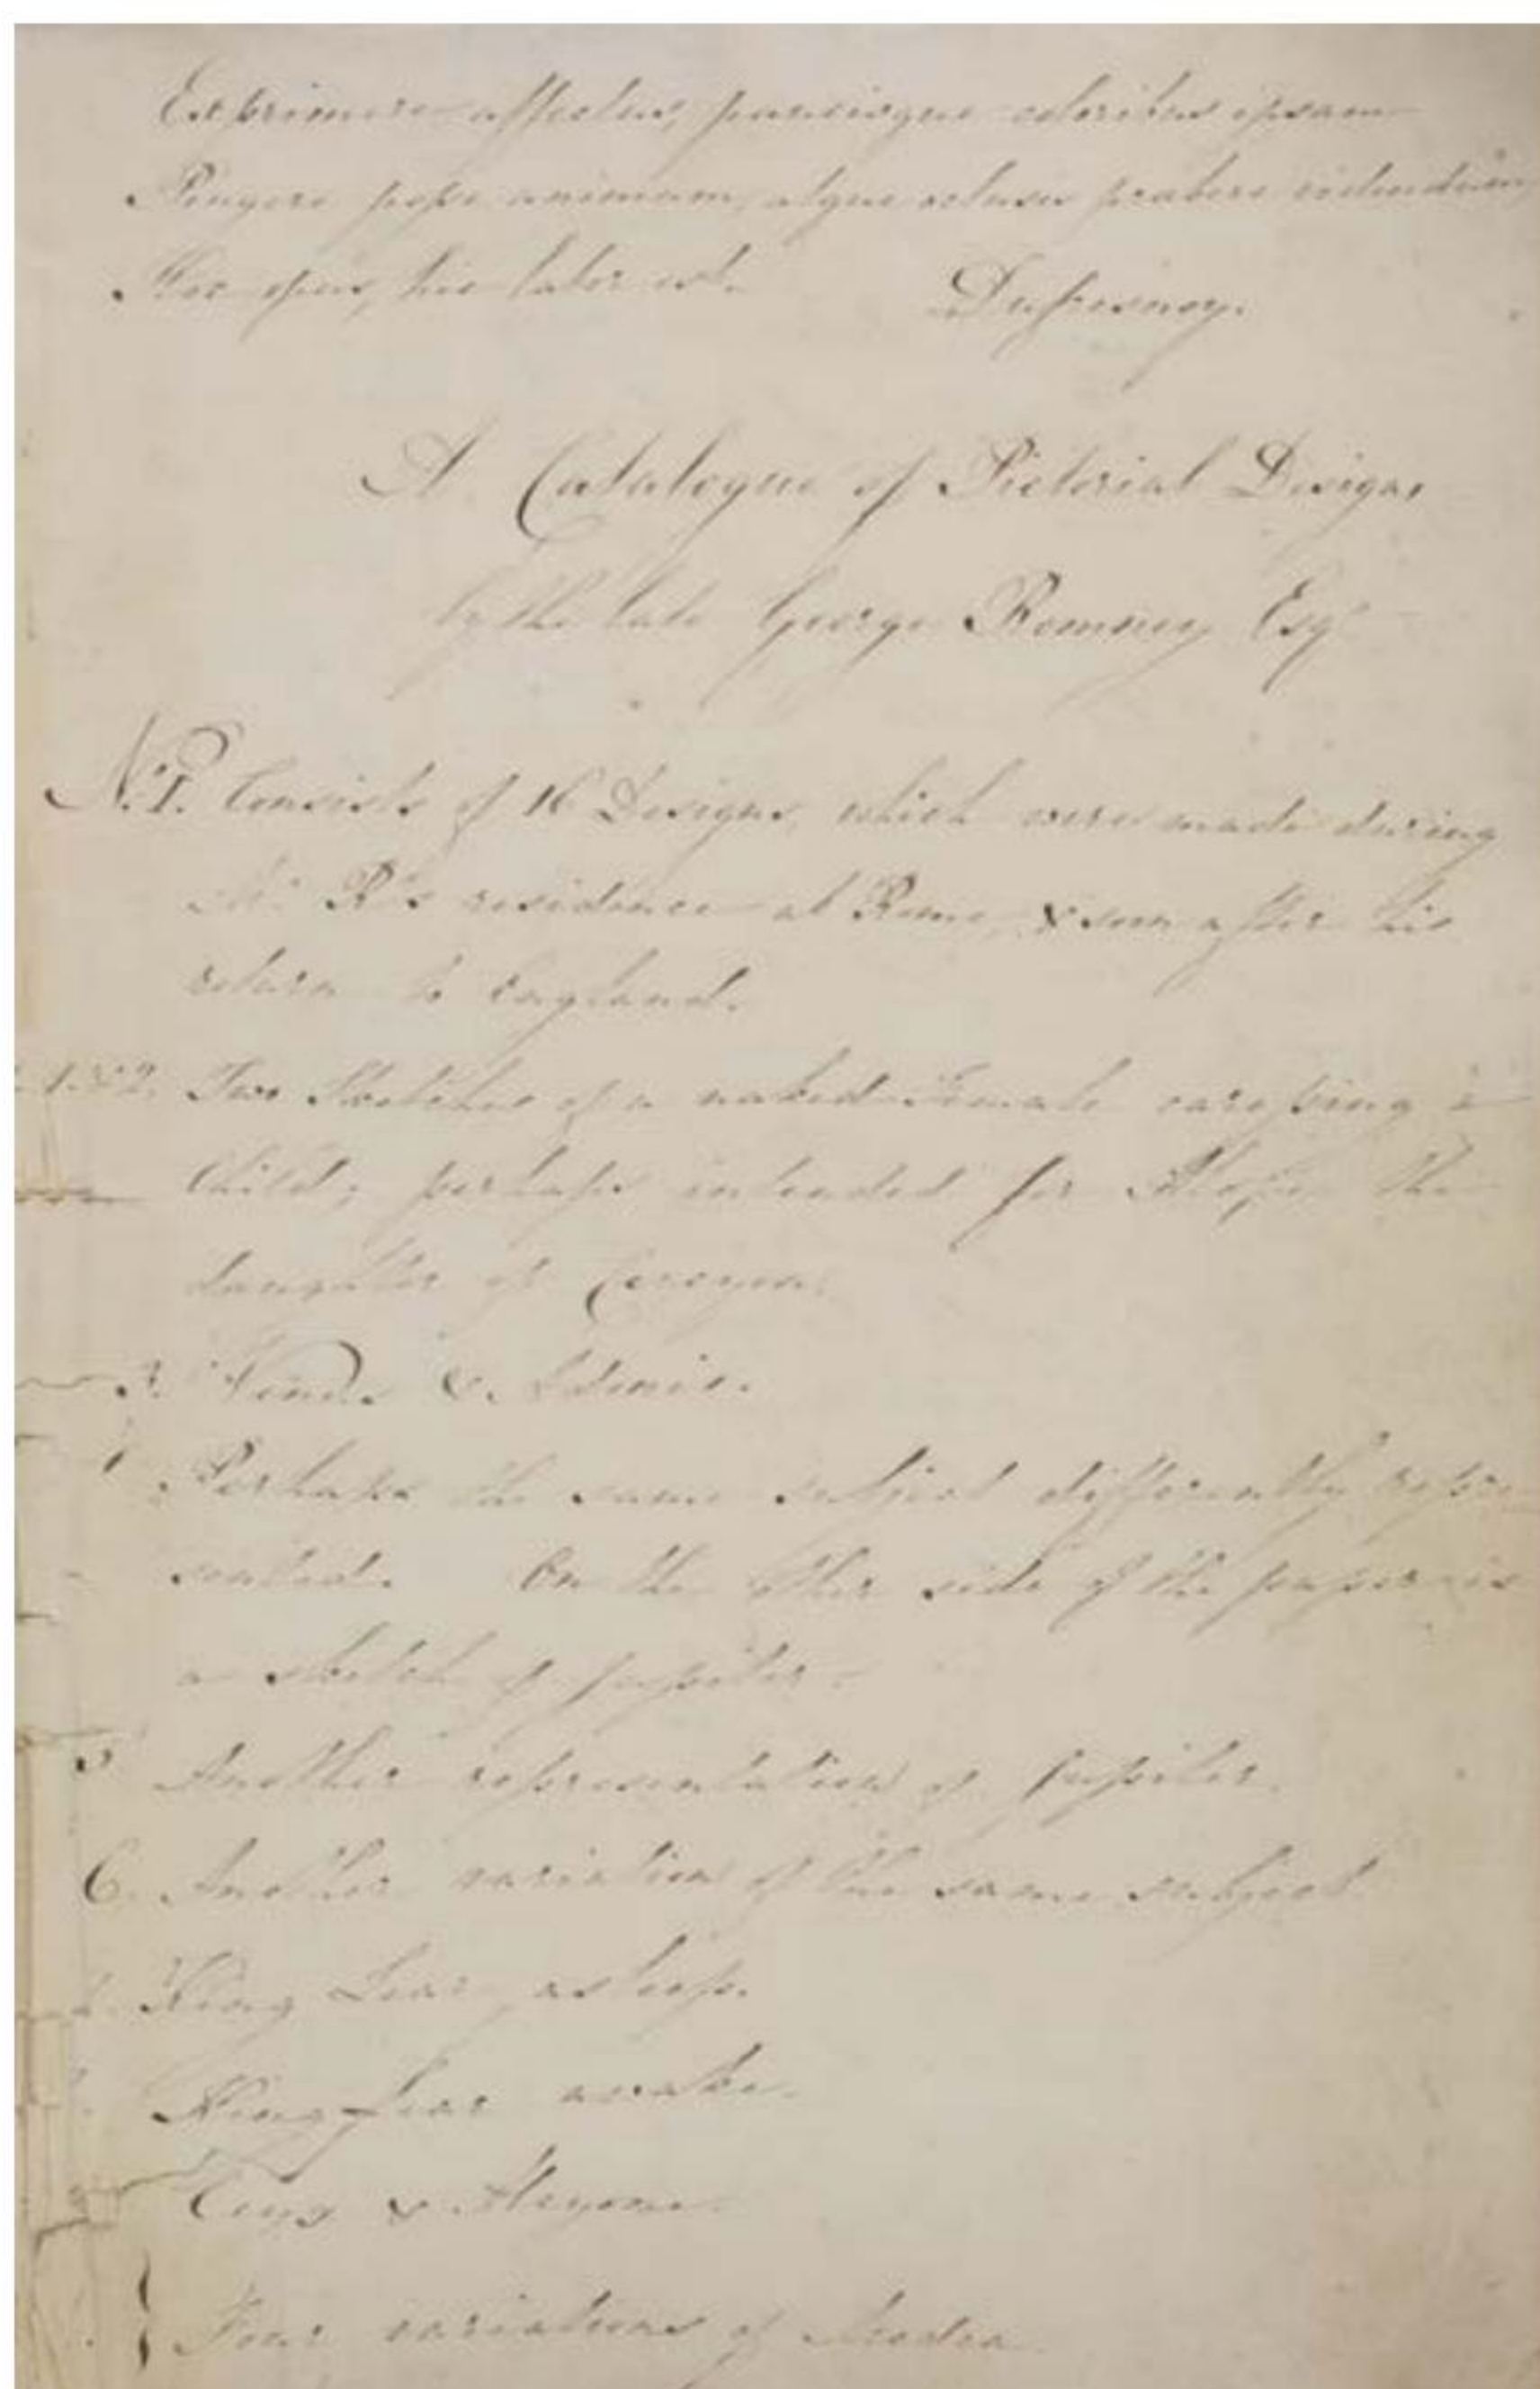 Exprimere affectus, paucisque coloribus ipsam
Pingere posse animam, atque oculis præbere videndam,
Hoc opus, hic labor est. Dufresnoy.
A Catalogue of Pictorial Designs
by the late George Romney Esqr
No. 1. Consists of 16 Designs, which were made during
Mr. R's residence at Rome, & soon after his
return to England.
1. & 2. Two Sketches of a naked Female caressing a
Child; perhaps intended for Alope the
daughter of Cercyon.
3. Venus & Adonis.
Perhaps the same subject differently repre-
sented. On the other side of the paper is
a sketch of Jupiter.
5 Another representation of Jupiter.
6. Another variation of the same subject
King Lear asleep.
King Lear awake.
Ceyx & Alcyone.
Four variations of Medea